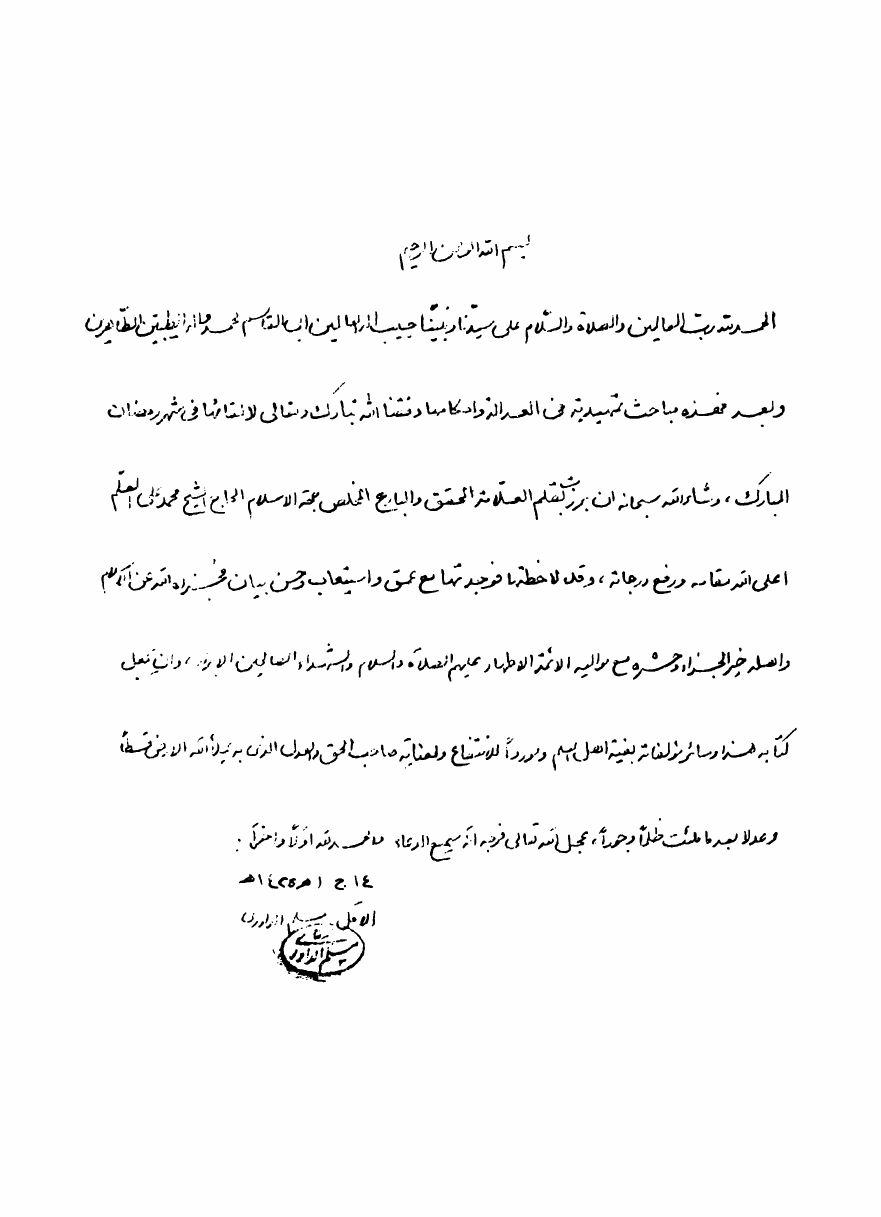 بسم الله الرحمن الرحيم
الحمد لله رب العالمين والصلاة والسّلام على سيّدنا ونبيّنا حبيب اله العالمين ابي القاسم محمد وآله الطيبين الطّاهرين
وبعد فهذه مباحث تمهيدية في العدالة واحكامها وفقنا الله تبارك وتعالى لالقائها في شهر رمضان
المبارك ، وشاء الله سبحانه ان برزت بقلم العلّامة المحقق والبارع المخلص حجة الاسلام الحاج الشيخ محمد علي المعلّم
اعلى الله مقامه ورفع درجاته ، وقد لاحظتها فوجدتها مع عمق واستيعاب وحسن بيان فجزاه الله عن الاسلام
واهله خير الجزاء وحشره مع مواليه الائمة الاطهار عليهم الصلاة والسلام والشهداء الصالحين الابرار ، وان يجعل
كتابه هذا وسائر مؤلفاته بغية اهل العلم ومورداً للانتفاع ولعناية صاحب الحق والعدل الذي به يملأ الله الارض قسطاً
وعدلا بعد ما ملئت ظلماً وجوراً ، عجل الله تعالى فرجه انّه سميع الدعاء والحمد لله اوّلاً وآخراً :
١٤ ج ١ ١٤٢٥هـ
الاقل مسلم الداوري
مسلم الداوري